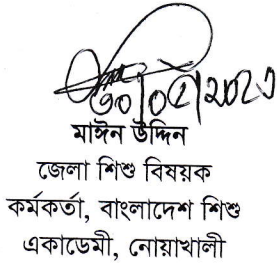 ৩০/০৫/২০২৩
মাঈন উদ্দিন
জেলা শিশু বিষয়ক
কর্মকর্তা, বাংলাদেশ শিশু
একাডেমী, নোয়াখালী